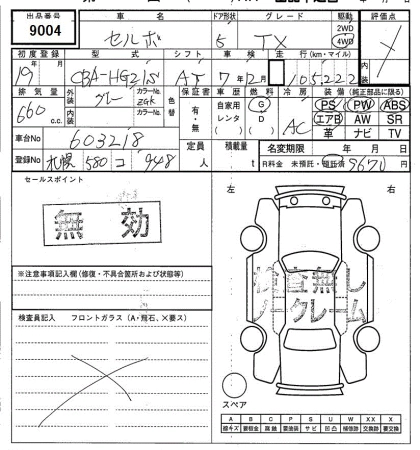 出品番号 車 名 ドア形状 グレード 駆動 評価点
9004 セルボ 5 TX 2WD 4WD
初度登録 型 式 シフト 車 検 走 行 (km・マイル) 内装
19年 月 CBA-HG21S AT 7年2月 105222
排気量 外装 色 カラーNo. 色替 保証書 車歴 燃料 冷房 装 備 (純正部品に限る)
660 c.c. グレー ZGK 有・無 自家用 G AC PS PW ABS
内装 カラーNo. レンタ D エアB AW SR
( ) ( ) 革 ナビ TV
車台No 603218 定員 人 積載量 t 名変期限 年 月 日
登録No 札幌 580 コ 948 R料金 未預託・預託済 9670円
セールスポイント 左 右
無 効
検査無し
ノークレーム
※注意事項記入欄(修復・不具合箇所および状態等)
検査員記入 フロントガラス (A・飛石、×要ス)
スペア
A B C P S U W XX X
線キズ 腐食 塗装該 サビ 凹凸 補修跡 交換跡 要交換